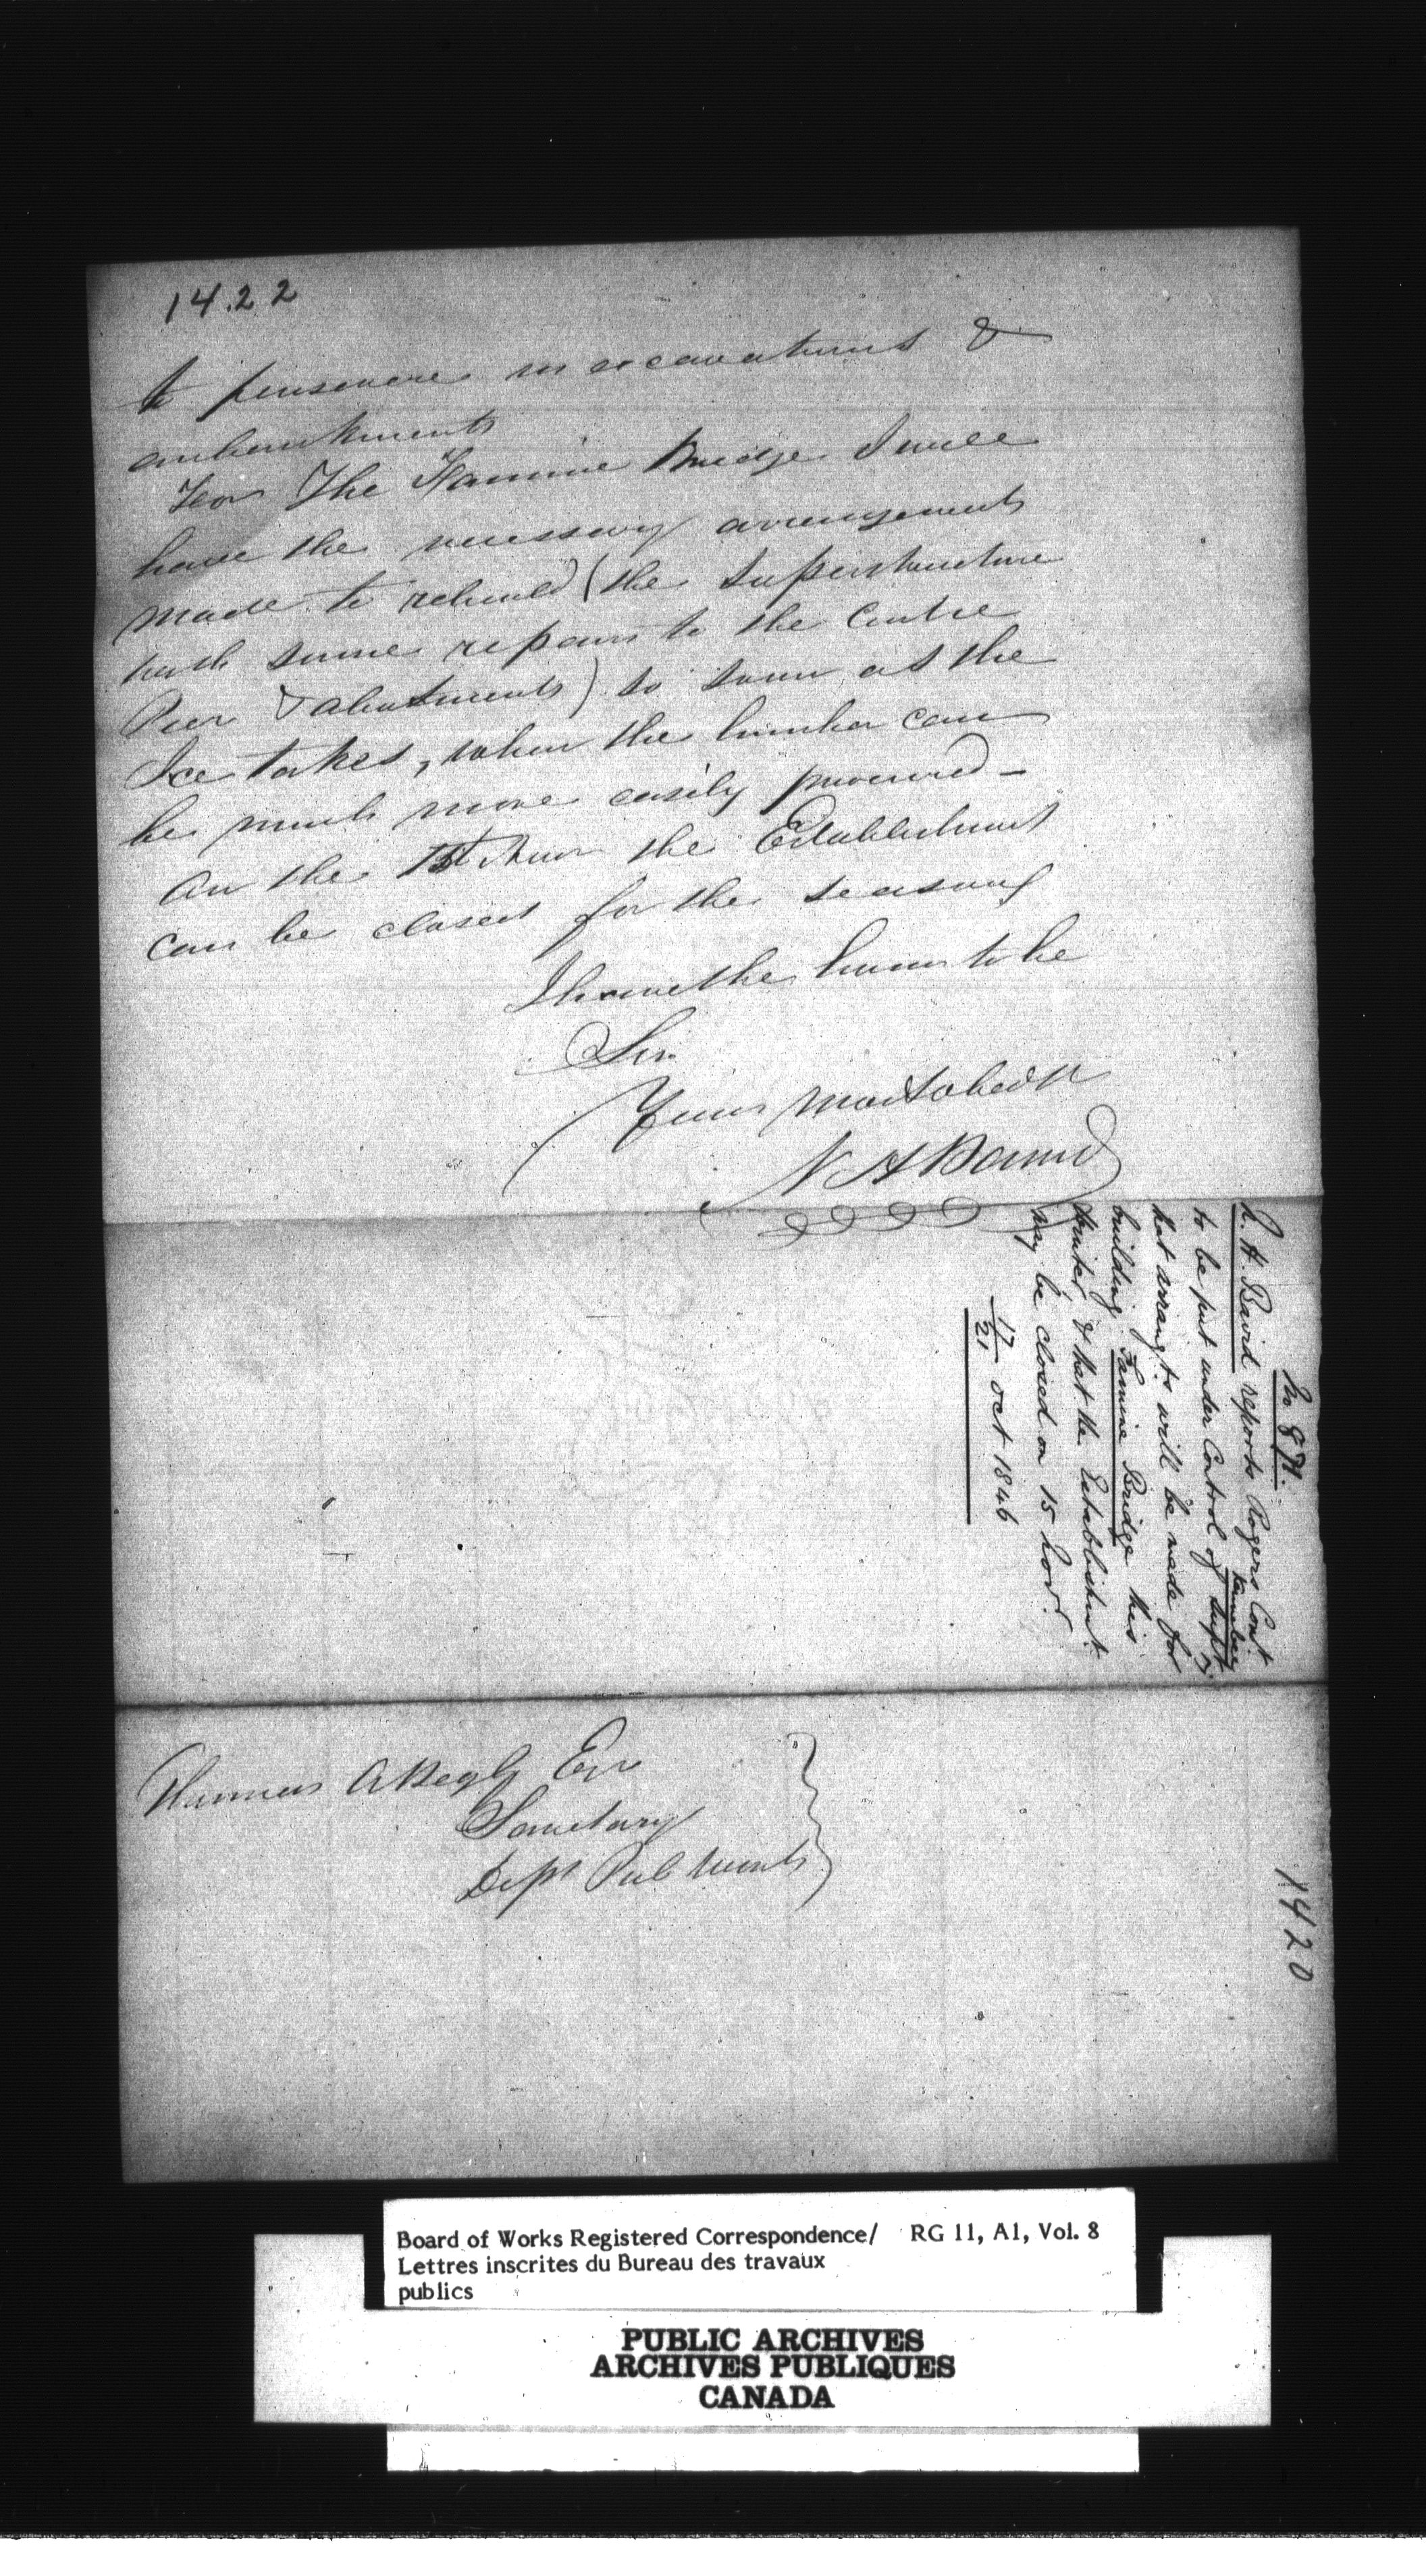 14.22
to persevere in excavations &
embankments
For The Famine Bridge I will
have the necessary arrangements
made to rebuild (the Superstructure
with some repairs to the Centre
Pier & abutments) so soon as the
Ice takes, when the lumber can
be much more easily procured —
On the 15th Novr the Establishment
can be closed for the season
I have the honor to be
Sir
Your Most obedt
N H Baird
No 8 71.
N. H. Baird reports Rogers Cont.
Kennebec
to be put under Control of Supt &
that arrangts will be made for
building Famine Bridge this
Winter & that the Establishmt.
may be closed on 15 Novr.
17/21 Oct 1846
Thomas A Begly Esqr
Secretary
Dept Pub Works
1420
Board of Works Registered Correspondence/ RG 11, A1, Vol. 8
Lettres inscrites du Bureau des travaux
publics
PUBLIC ARCHIVES
ARCHIVES PUBLIQUES
CANADA